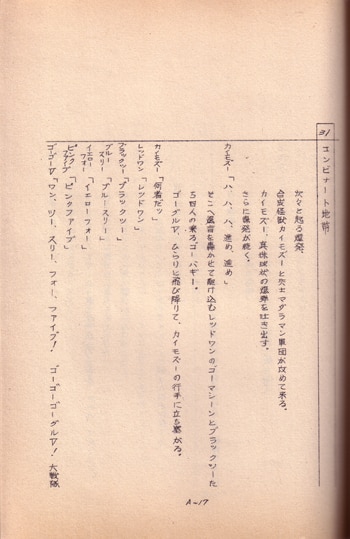 31
コンビナート地帯
次々と起る爆発。
合成怪獣カイモズーと兵士マグラマン軍団が攻めて来る。
カイモズー、真珠状の爆弾を吐き出す。
さらに爆発が続く。
カイモズー「ハ、ハ、ハ、進め、進め」
そこへ爆音を轟かせて駆け込むレッドワンのゴーマシーンとブラックツーた
ち四人の乗るゴーバギー。
ゴーグルⅤ、ひらりと飛び降りて、カイモズーの行手に立ち塞がる。
カイモズー「何者だッ」
レッドワン「レッドワン」
ブラックツー「ブラックツー」
ブルースリー「ブルースリー」
イエローフォー「イエローフォー」
ピンクファイブ「ピンクファイブ」
ゴーグルⅤ「ワン、ツー、スリー、フォー、ファイブ！　ゴーゴーゴーグルⅤ！　大戦隊
A-17